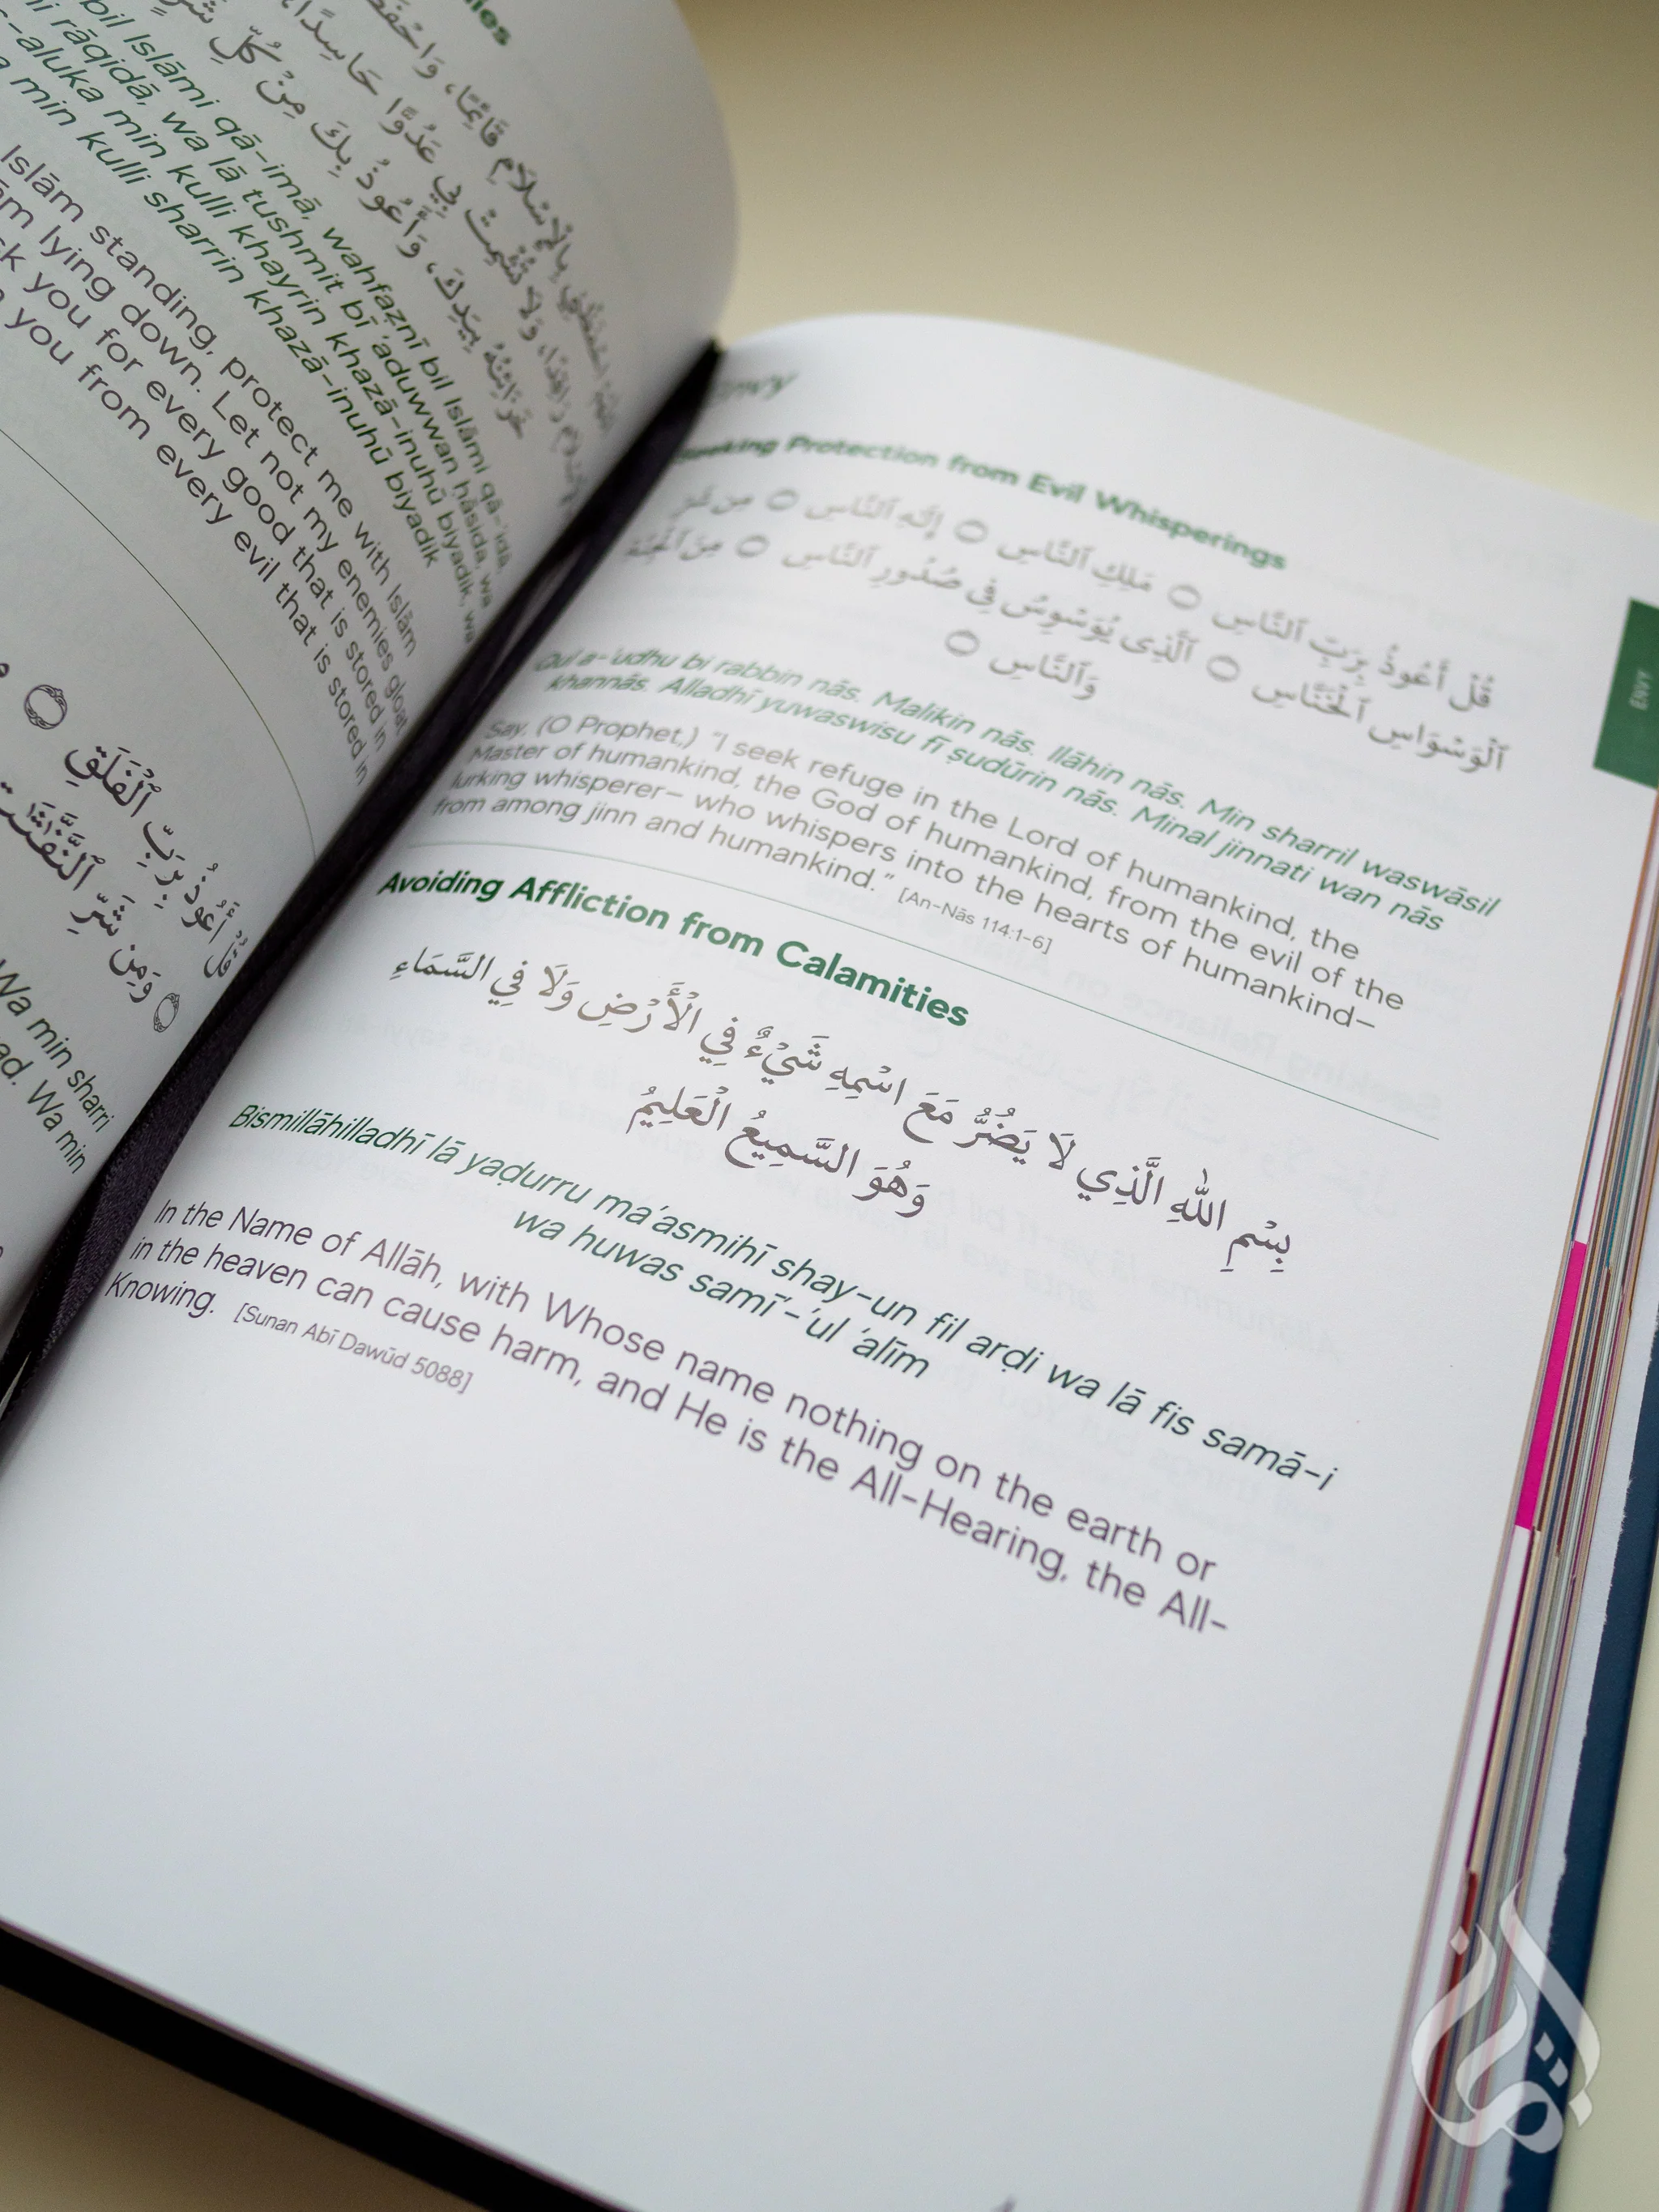 بِالْإِسْلَامِ قَائِمًا، وَاحْفَظْنِي
عَدُوًّا حَاسِدًا
وَأَعُوذُ بِكَ مِنْ كُلِّ
خَزَائِنُهُ بِيَدِكَ،
bil Islāmi qā-imā, wahfaẓnī bil Islāmi qā-'idā,
rāqidā, wa lā tushmit bī 'aduwwan ḥāsida, wa
-aluka min kulli khayrin khazā-inuhū biyadik, wa
min kulli sharrin khazā-inuhū biyadik
Islām standing, protect me with Islām
lying down. Let not my enemies gloat
you for every good that is stored in
you from every evil that is stored in
قُلْ أَعُوذُ بِرَبِّ ٱلْفَلَقِ
وَمِن شَرِّ ٱلنَّفَّٰثَٰتِ
Wa min sharri
Wa min
Envy
Seeking Protection from Evil Whisperings
قُلْ أَعُوذُ بِرَبِّ ٱلنَّاسِ ۝ مَلِكِ ٱلنَّاسِ ۝ إِلَٰهِ ٱلنَّاسِ ۝ مِن شَرِّ
ٱلْوَسْوَاسِ ٱلْخَنَّاسِ ۝ ٱلَّذِى يُوَسْوِسُ فِى صُدُورِ ٱلنَّاسِ ۝ مِنَ ٱلْجِنَّةِ
وَٱلنَّاسِ ۝
Qul a-'udhu bi rabbin nās. Malikin nās. Ilāhin nās. Min sharril waswāsil
khannās. Alladhī yuwaswisu fī ṣudūrin nās. Minal jinnati wan nās
Say, (O Prophet,) "I seek refuge in the Lord of humankind, the
Master of humankind, the God of humankind, from the evil of the
lurking whisperer— who whispers into the hearts of humankind—
from among jinn and humankind." [An-Nās 114:1-6]
ENVY
Avoiding Affliction from Calamities
بِسْمِ اللهِ الَّذِي لَا يَضُرُّ مَعَ اسْمِهِ شَيْءٌ فِي الْأَرْضِ وَلَا فِي السَّمَاءِ
وَهُوَ السَّمِيعُ الْعَلِيمُ
Bismillāhilladhī lā yaḍurru ma'asmihī shay-un fil arḍi wa lā fis samā-i
wa huwas samī'-'ul 'alīm
In the Name of Allāh, with Whose name nothing on the earth or
in the heaven can cause harm, and He is the All-Hearing, the All-
Knowing. [Sunan Abī Dawūd 5088]